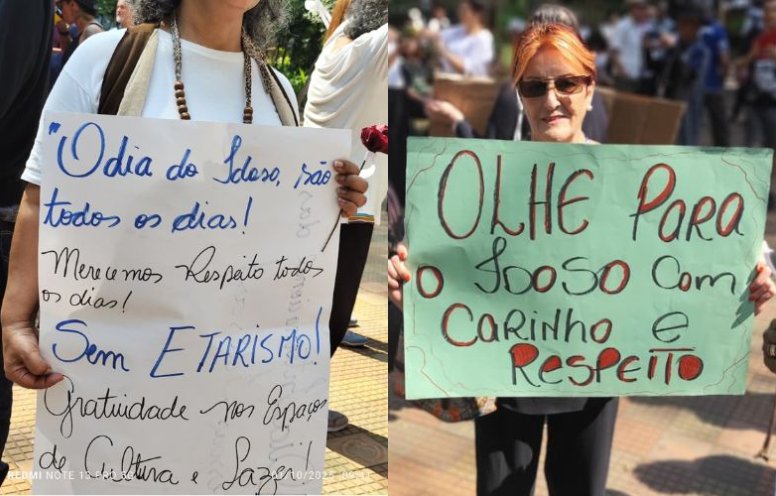 "O dia do Idoso, são
todos os dias!
Merecemos Respeito todos
os dias!
Sem ETARISMO!
Gratuidade nos Espaços
de Cultura e Lazer!
REDMI NOTE 13 PRO 5G
OLHE PARA
O IDOSO COM
CARINHO E
RESPEITO